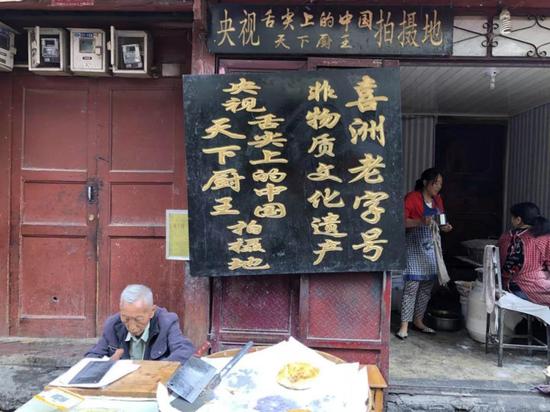 央视舌尖上的中国拍摄地
天下厨王
喜洲老字号
非物质文化遗产
央视舌尖上的中国
天下厨王 拍摄地